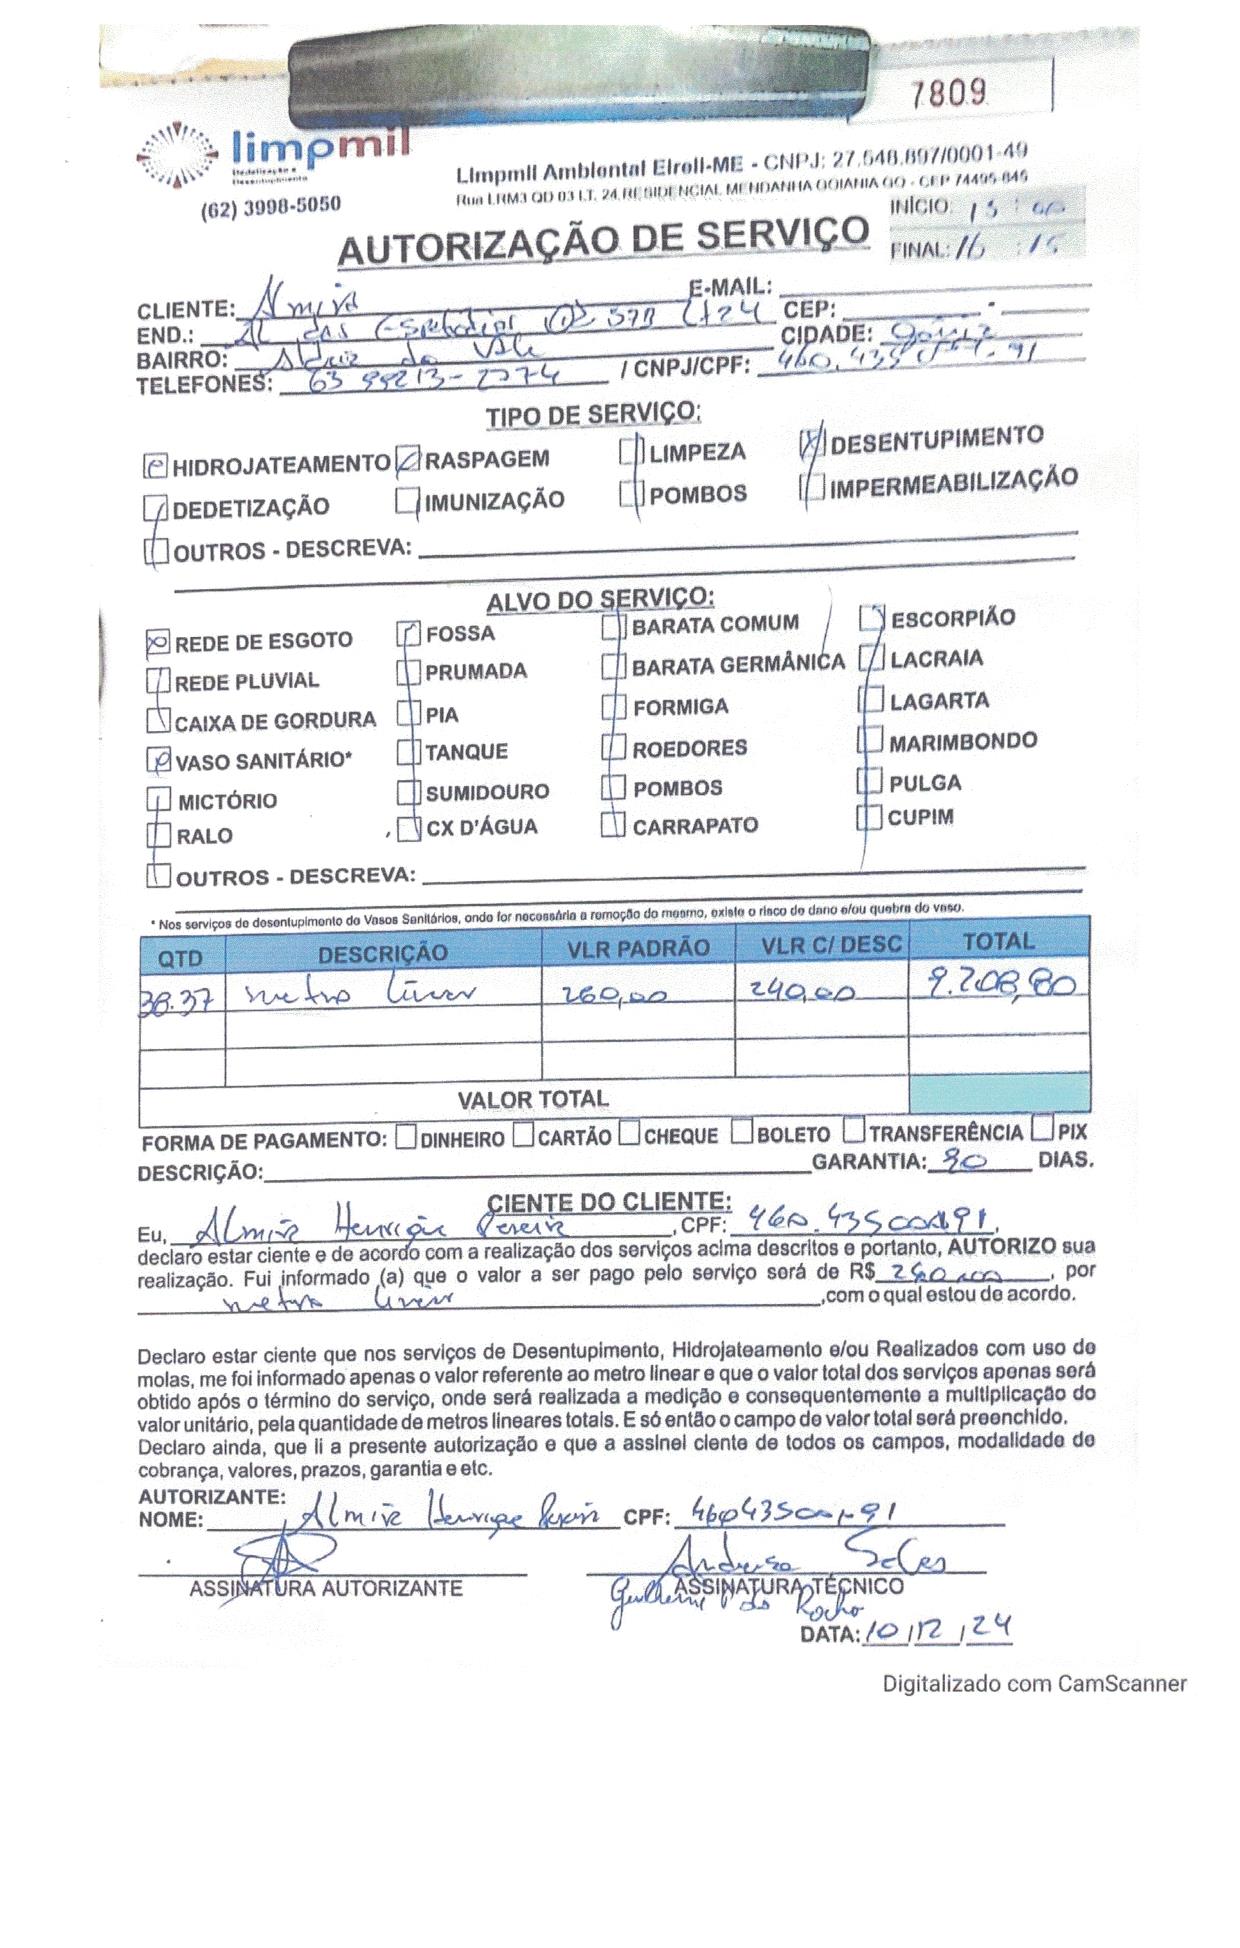 7809
limpmil
Dedetização e
Desentupimento
(62) 3998-5050
Limpmil Ambiental Eireli-ME - CNPJ: 27.648.897/0001-49
Rua LRM3 QD 03 LT. 24 RESIDENCIAL MENDANHA GOIANIA GO - CEP 74495-845
INÍCIO: 15:00
FINAL: 16:15
AUTORIZAÇÃO DE SERVIÇO
CLIENTE: Almir E-MAIL:
END.: Al das LT24 CEP: -
BAIRRO: do Vale CIDADE:
TELEFONES: 63 99213-2774 / CNPJ/CPF: 460.435 91
TIPO DE SERVIÇO:
HIDROJATEAMENTO RASPAGEM LIMPEZA DESENTUPIMENTO
DEDETIZAÇÃO IMUNIZAÇÃO POMBOS IMPERMEABILIZAÇÃO
OUTROS - DESCREVA:
ALVO DO SERVIÇO:
REDE DE ESGOTO FOSSA BARATA COMUM ESCORPIÃO
REDE PLUVIAL PRUMADA BARATA GERMÂNICA LACRAIA
CAIXA DE GORDURA PIA FORMIGA LAGARTA
VASO SANITÁRIO* TANQUE ROEDORES MARIMBONDO
MICTÓRIO SUMIDOURO POMBOS PULGA
RALO CX D'ÁGUA CARRAPATO CUPIM
OUTROS - DESCREVA:
* Nos serviços de desentupimento de Vasos Sanitários, onde for necessária a remoção do mesmo, existe o risco de dano e/ou quebra do vaso.
QTD DESCRIÇÃO VLR PADRÃO VLR C/ DESC TOTAL
38.37 metro linear 260,00 240,00 9.208,80
VALOR TOTAL
FORMA DE PAGAMENTO: DINHEIRO CARTÃO CHEQUE BOLETO TRANSFERÊNCIA PIX
DESCRIÇÃO: GARANTIA: 90 DIAS.
CIENTE DO CLIENTE:
Eu, Almir Henrique Pereira, CPF: 460.435001-91,
declaro estar ciente e de acordo com a realização dos serviços acima descritos e portanto, AUTORIZO sua
realização. Fui informado (a) que o valor a ser pago pelo serviço será de R$ 240,00, por
metro linear ,com o qual estou de acordo.
Declaro estar ciente que nos serviços de Desentupimento, Hidrojateamento e/ou Realizados com uso de
molas, me foi informado apenas o valor referente ao metro linear e que o valor total dos serviços apenas será
obtido após o término do serviço, onde será realizada a medição e consequentemente a multiplicação do
valor unitário, pela quantidade de metros lineares totais. E só então o campo de valor total será preenchido.
Declaro ainda, que li a presente autorização e que a assinei ciente de todos os campos, modalidade de
cobrança, valores, prazos, garantia e etc.
AUTORIZANTE:
NOME: Almir Henrique Pereira CPF: 460435001-91
Anderso Sales
ASSINATURA AUTORIZANTE ASSINATURA TÉCNICO
Guilherme da Rocha
DATA: 10/12/24
Digitalizado com CamScanner